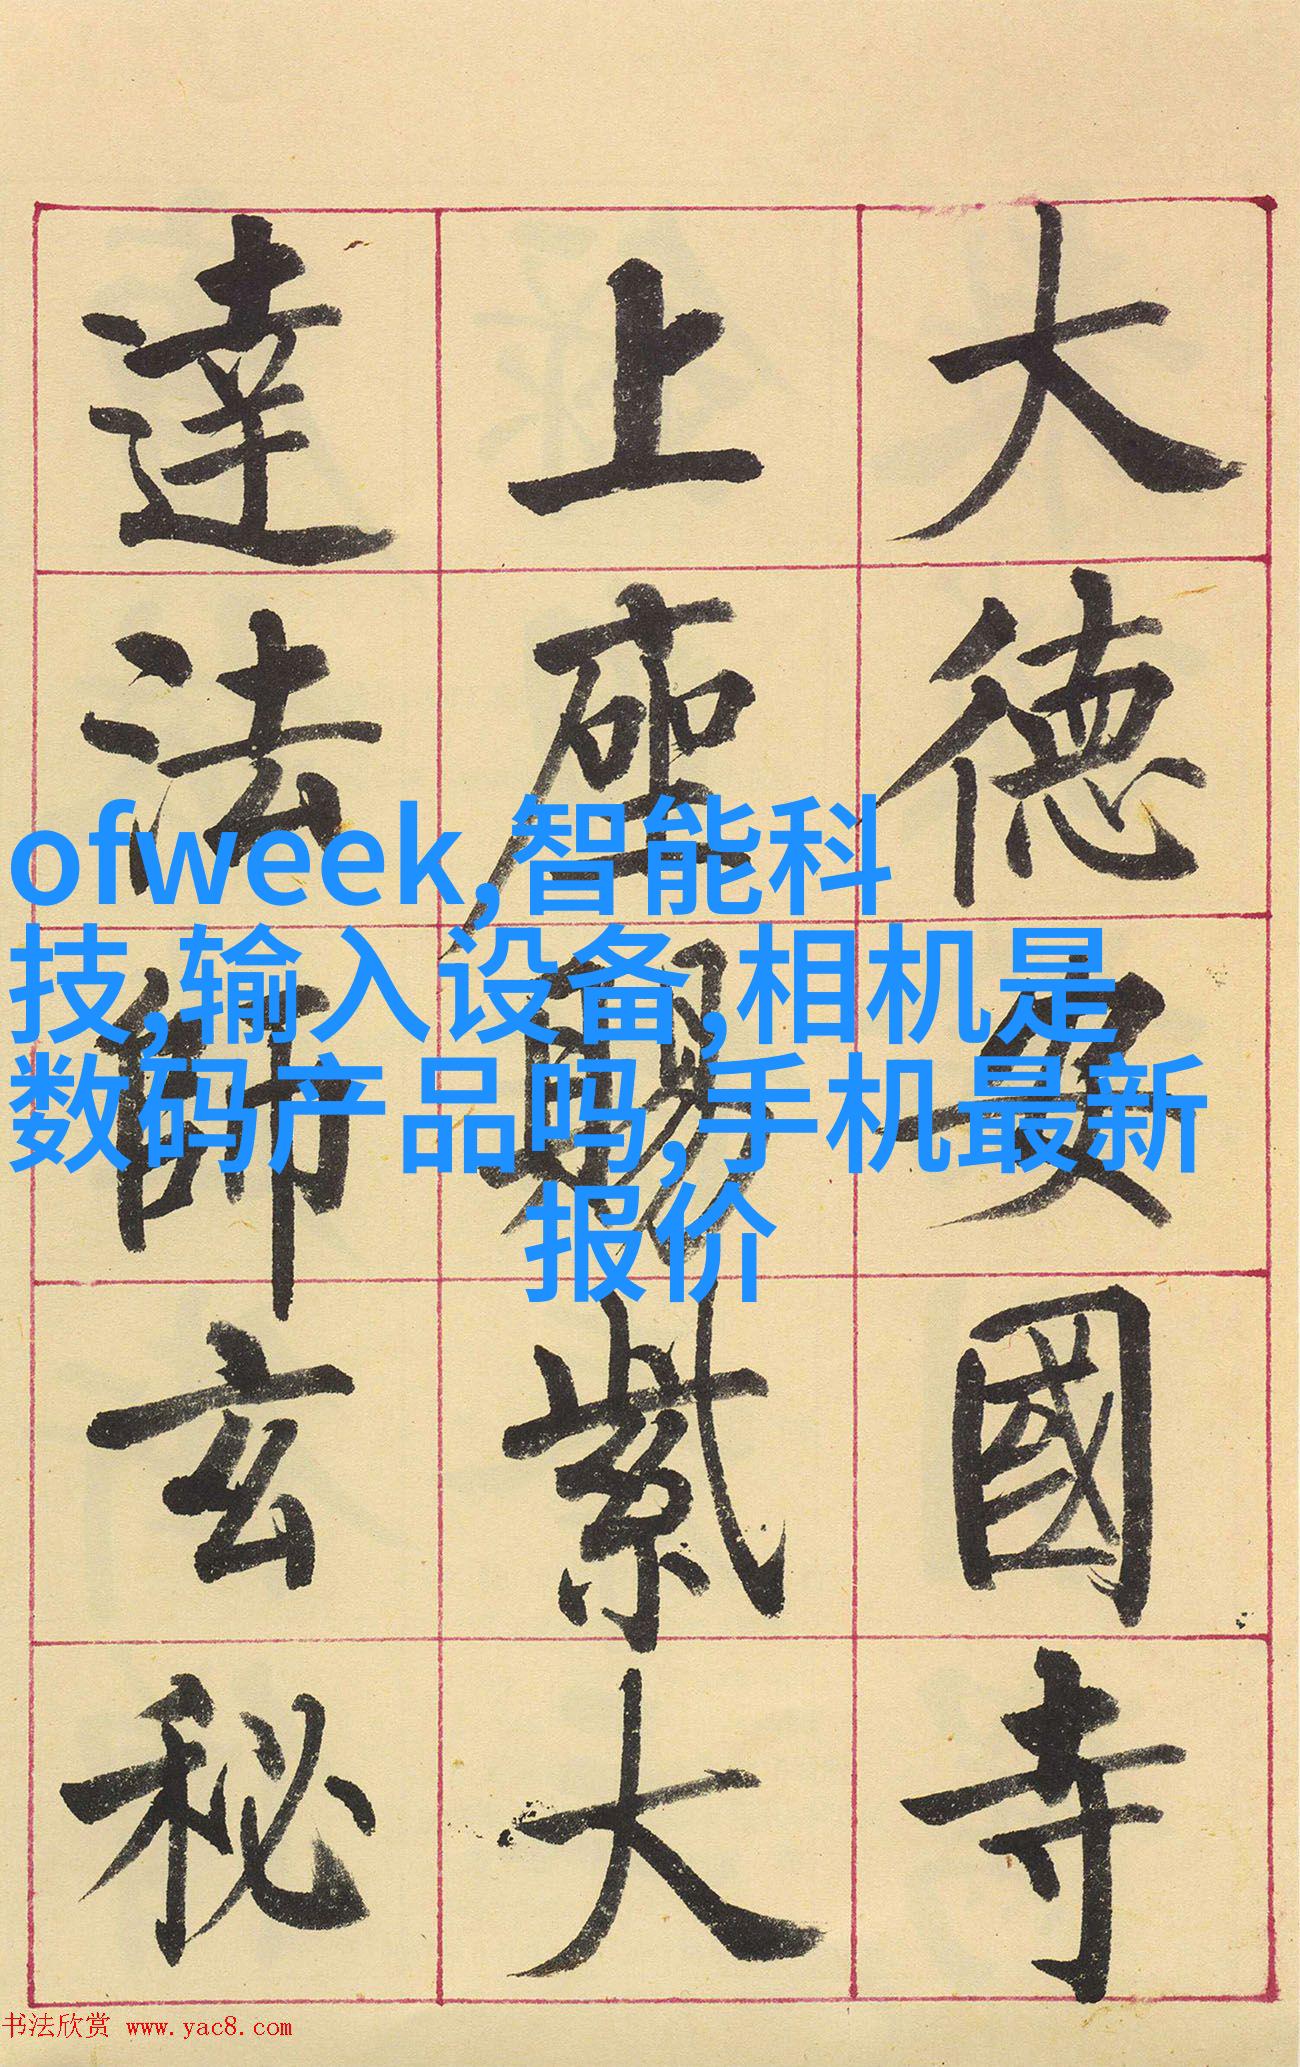 大德安國寺
上座賜紫大
達法師玄秘
ofweek,智能科
技,输入设备,相机是
数码产品吗,手机最新
报价
书法欣赏 www.yac8.com